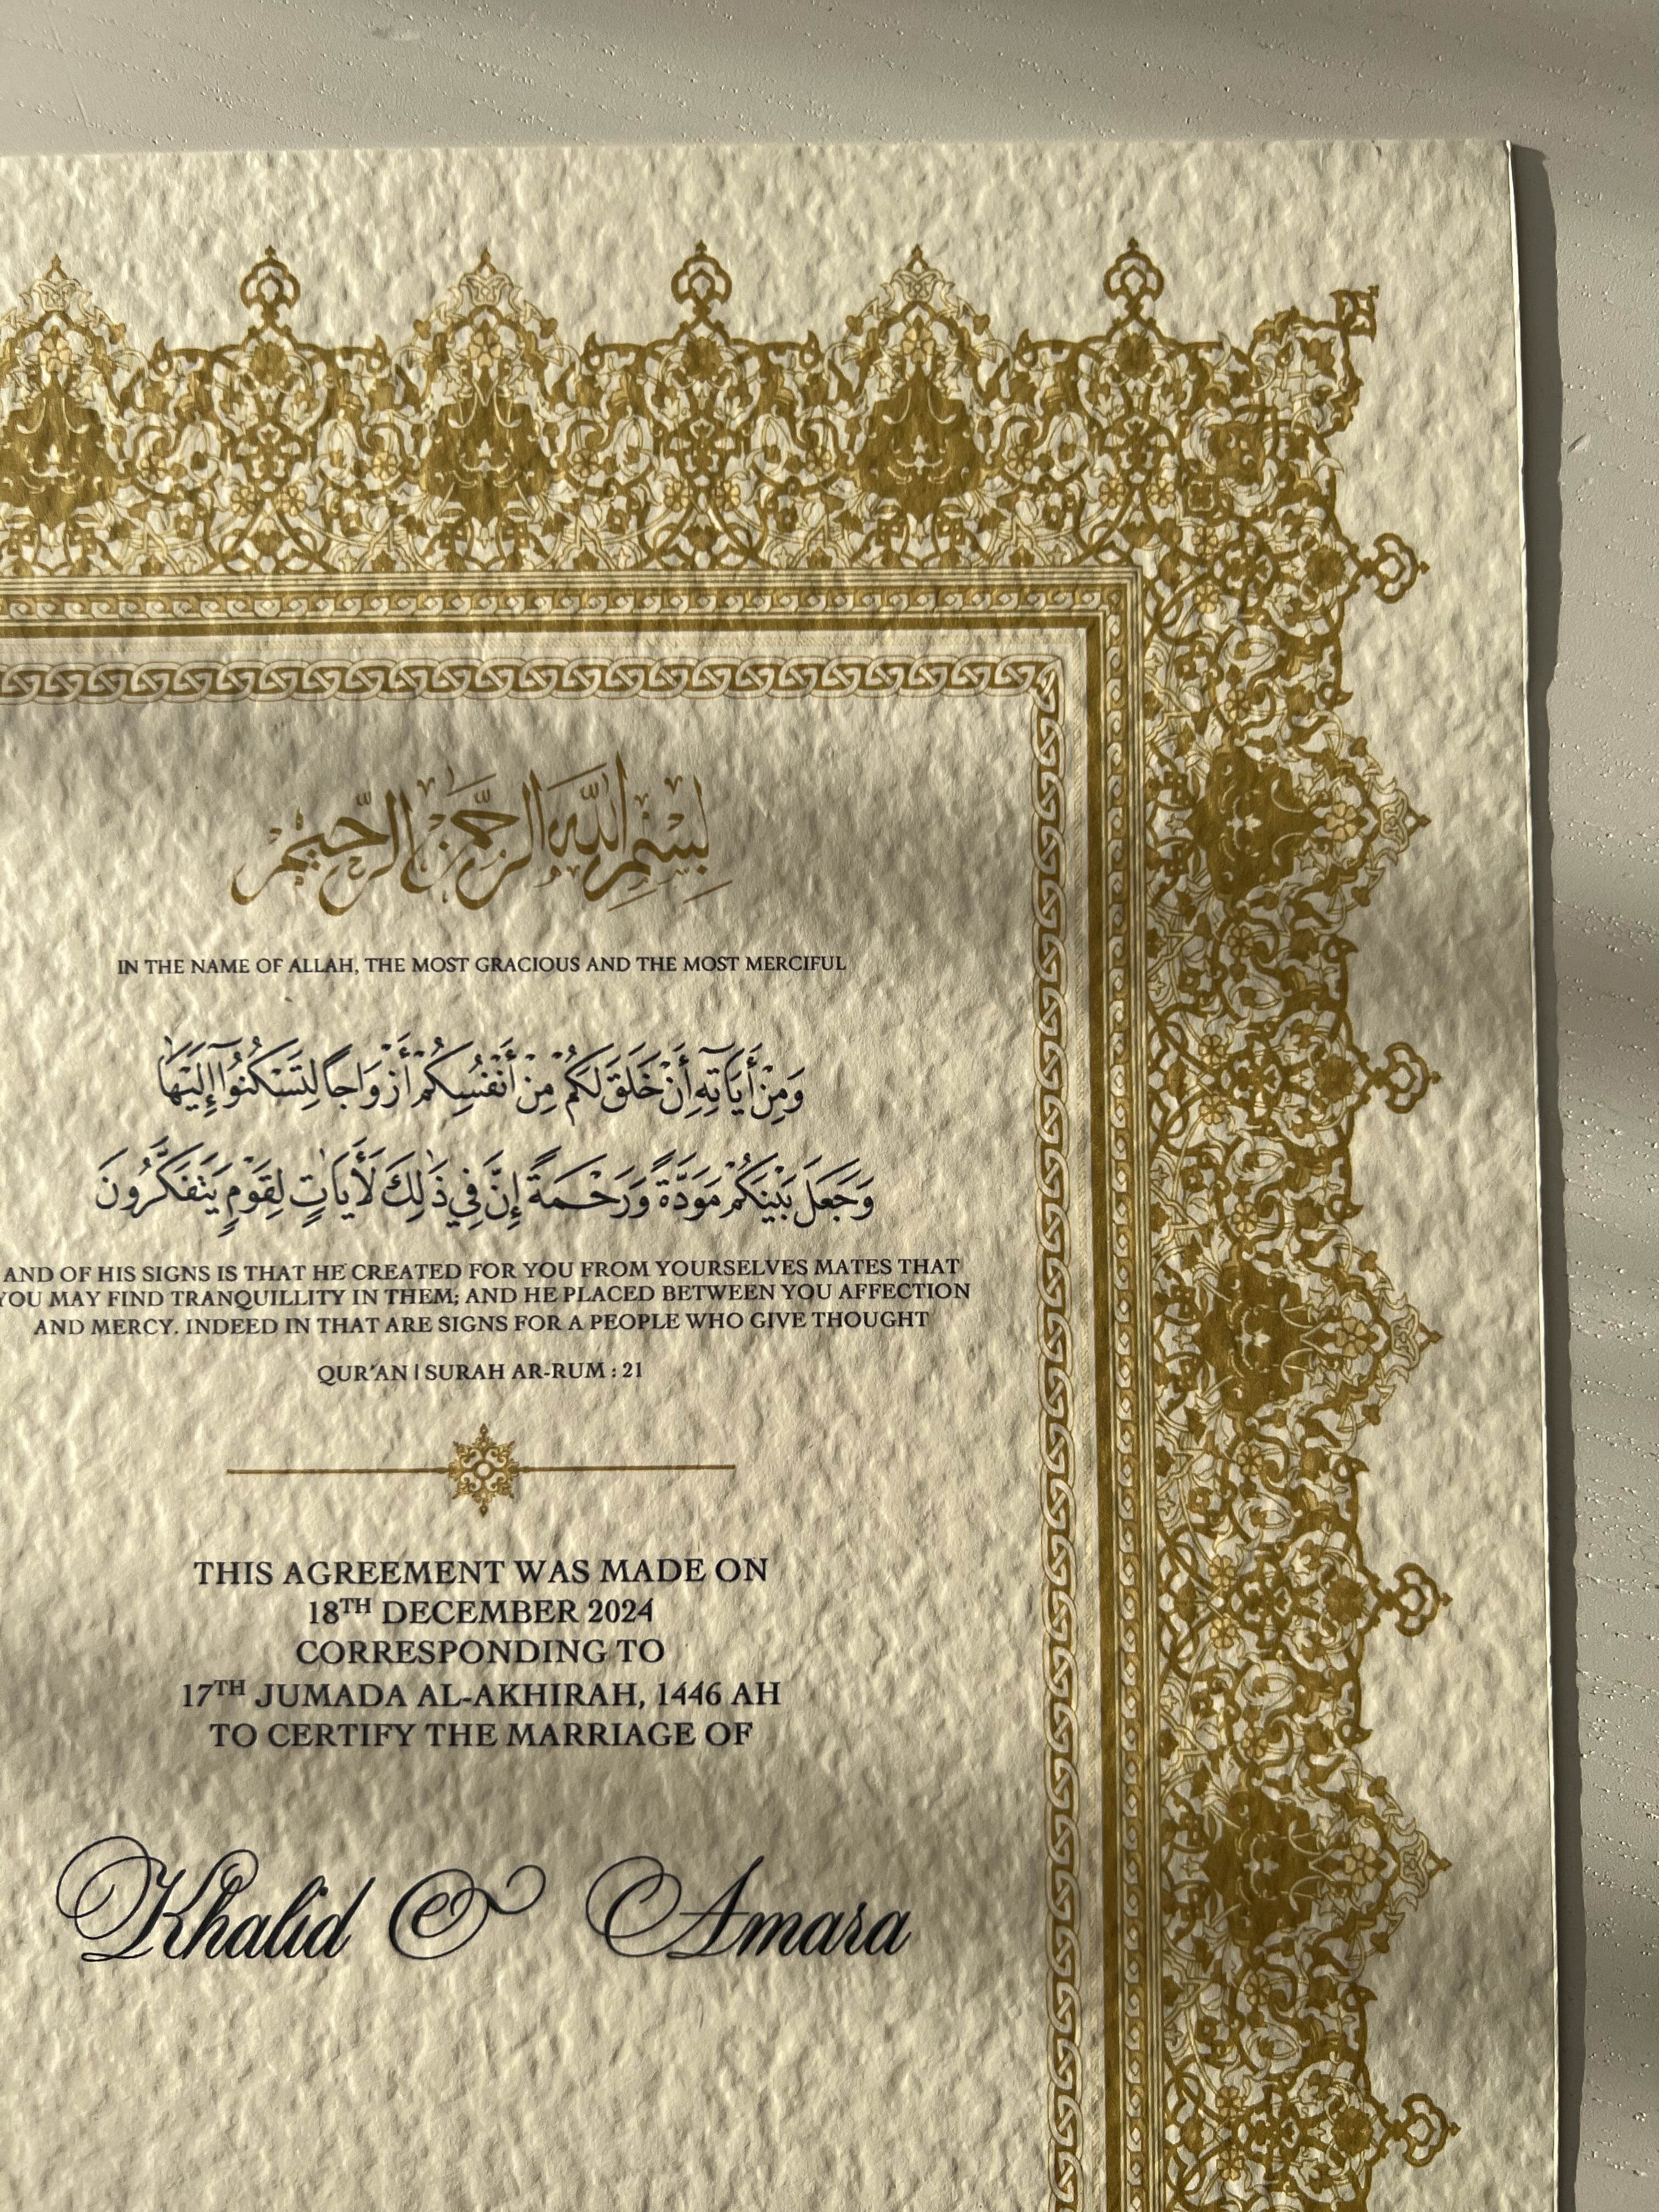 بِسْمِ اللَّهِ الرَّحْمَنِ الرَّحِيمِ
IN THE NAME OF ALLAH, THE MOST GRACIOUS AND THE MOST MERCIFUL
وَمِنْ أَيَآتِهِ أَنْ خَلَقَ لَكُمْ مِنْ أَنْفُسِكُمْ أَزْوَاجاً لِتَسْكُنُوا إِلَيْهَا
وَجَعَلَ بَيْنَكُمْ مَوَدَّةً وَرَحْمَةً إِنَّ فِي ذَٰلِكَ لَأَيَاتٍ لِقَوْمٍ يَتَفَكَّرُونَ
AND OF HIS SIGNS IS THAT HE CREATED FOR YOU FROM YOURSELVES MATES THAT
YOU MAY FIND TRANQUILLITY IN THEM; AND HE PLACED BETWEEN YOU AFFECTION
AND MERCY. INDEED IN THAT ARE SIGNS FOR A PEOPLE WHO GIVE THOUGHT
QUR'AN | SURAH AR-RUM : 21
THIS AGREEMENT WAS MADE ON
18TH DECEMBER 2024
CORRESPONDING TO
17TH JUMADA AL-AKHIRAH, 1446 AH
TO CERTIFY THE MARRIAGE OF
Khalid & Amara